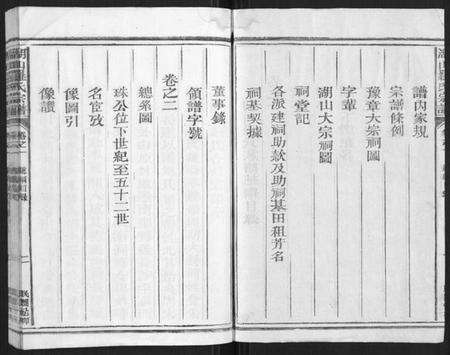 譜內家規
宗譜條例
豫章大宗祠圖
字輩
湖山大宗祠圖
祠堂記
各派建祠助款及助祠基田租芳名
祠基契據
董事錄
領譜字號
卷之二
總系圖
珠公位下世紀至五十二世
名宦攷
像圖引
像讚
湖山羅氏宗譜
卷之一